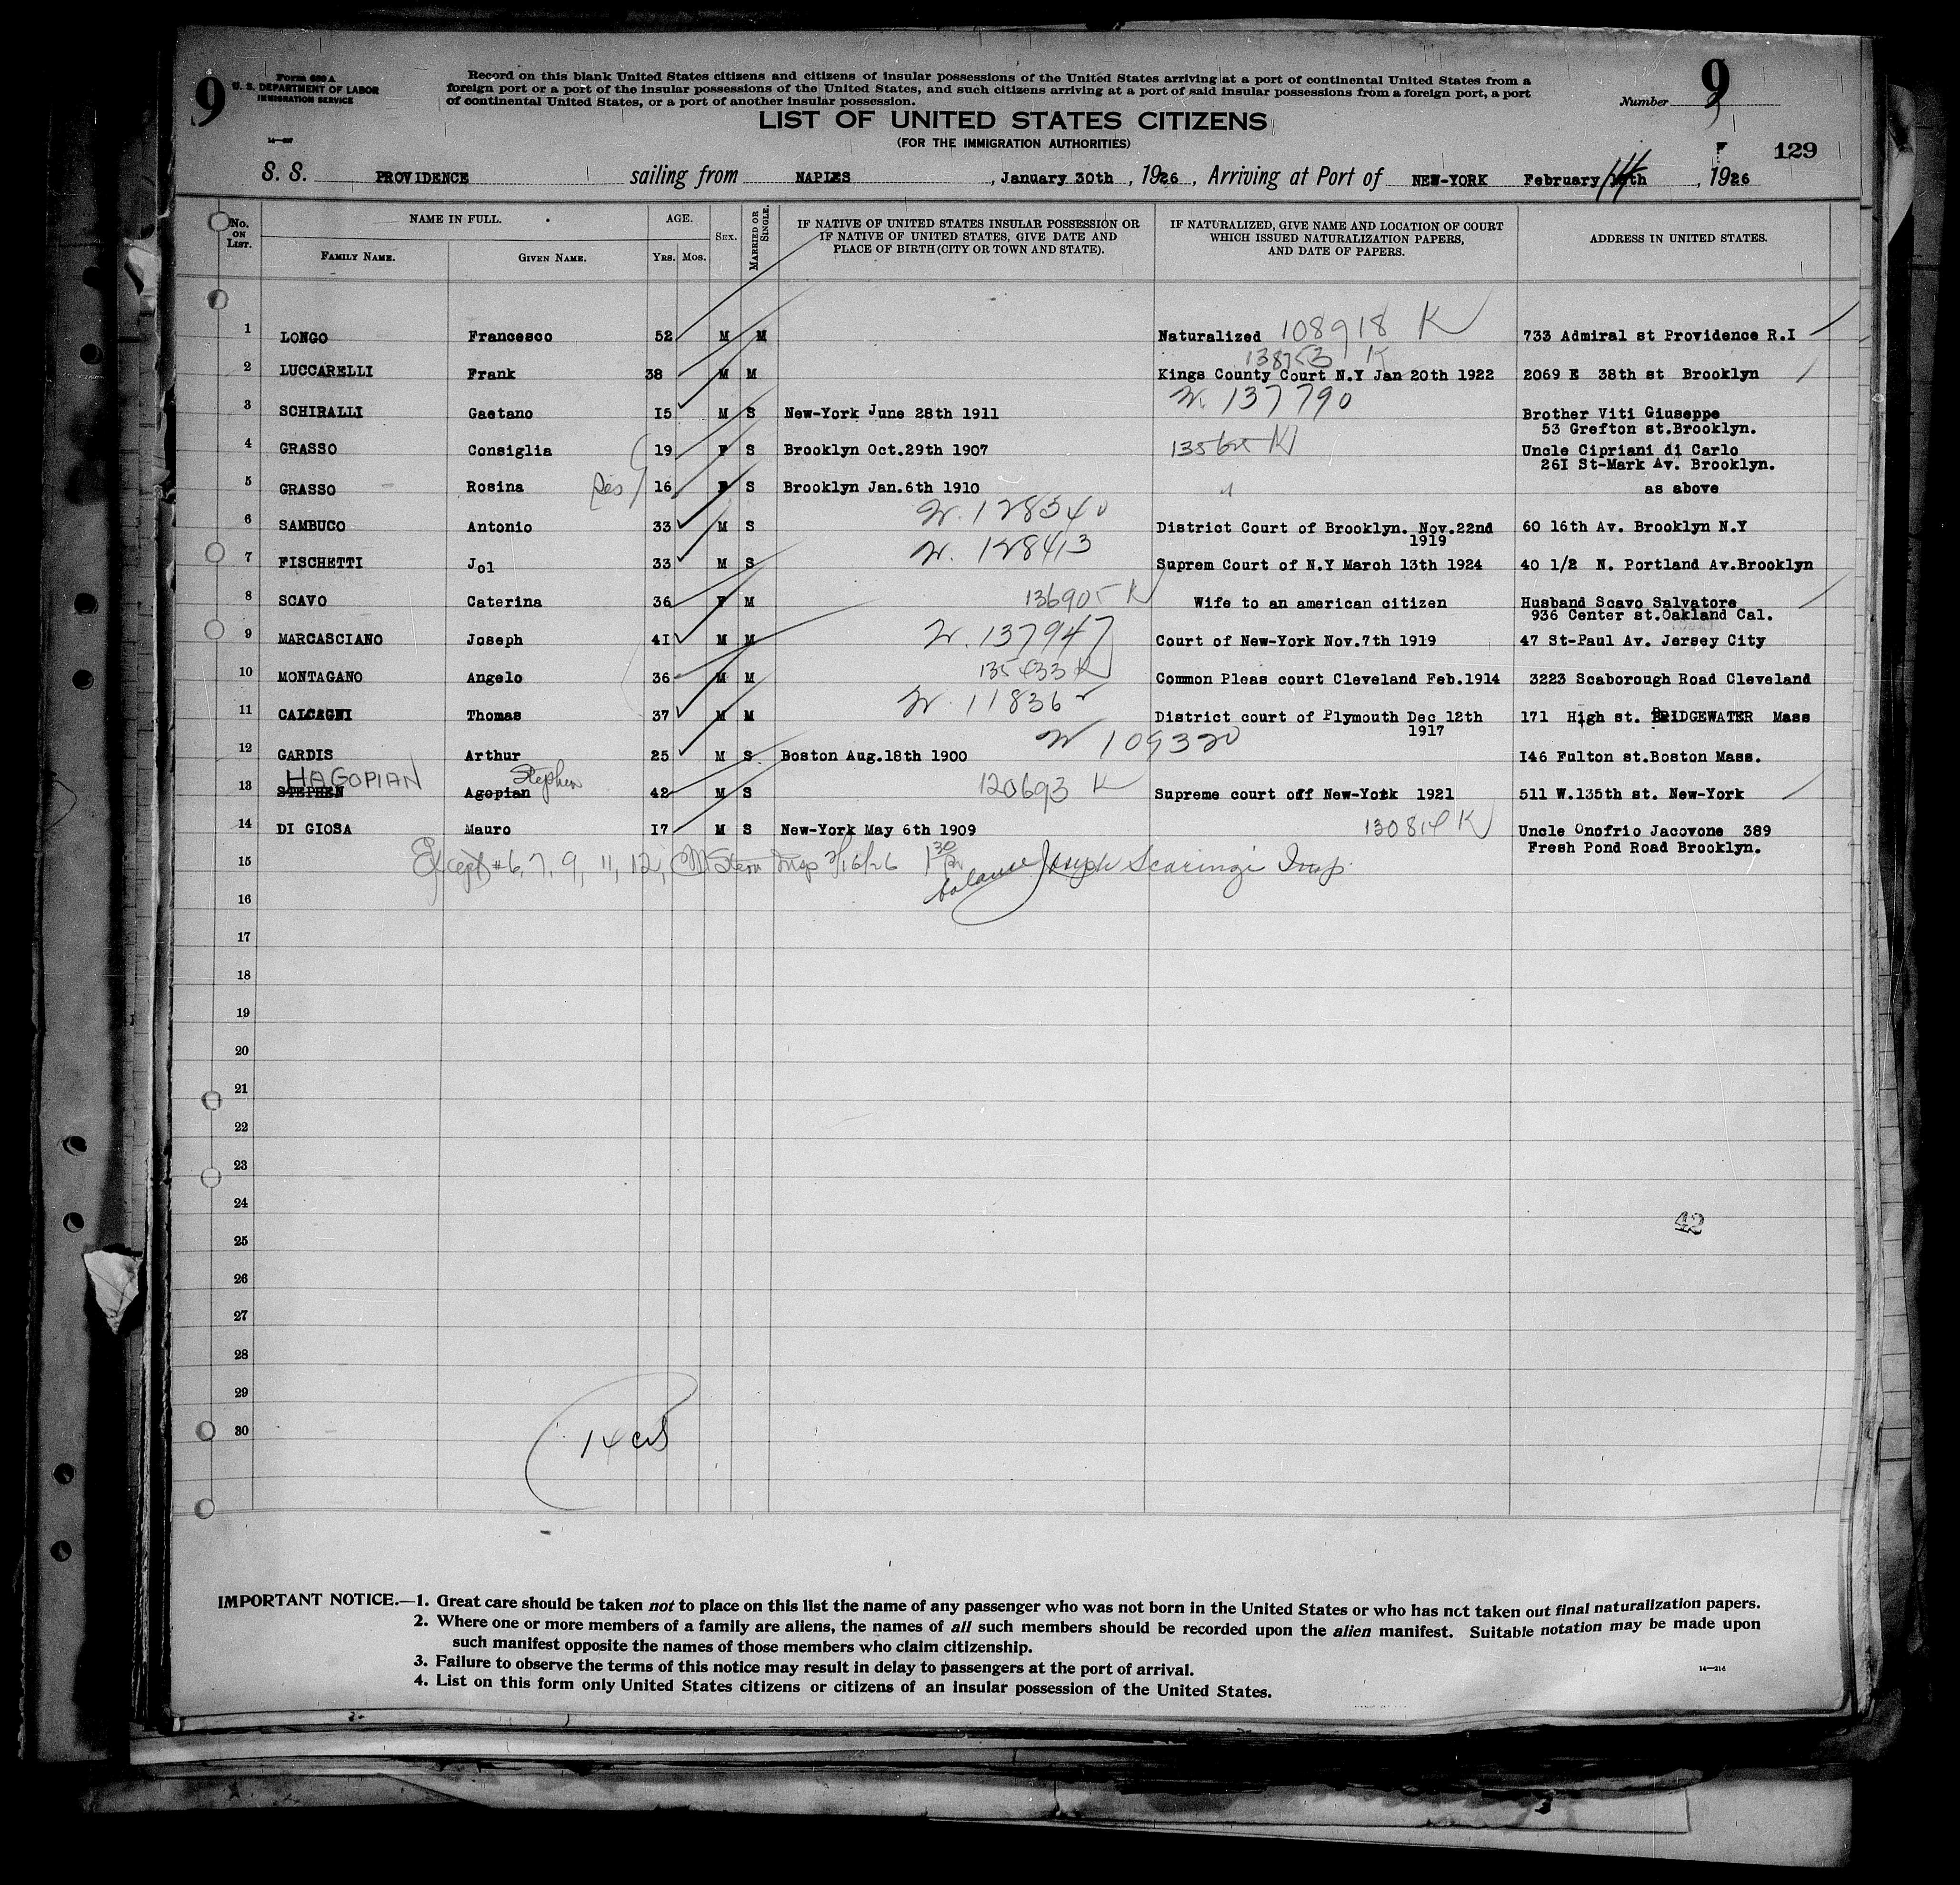 9
Form 630 A
U. S. DEPARTMENT OF LABOR
IMMIGRATION SERVICE
Record on this blank United States citizens and citizens of insular possessions of the United States arriving at a port of continental United States from a
foreign port or a port of the insular possessions of the United States, and such citizens arriving at a port of said insular possessions from a foreign port, a port
of continental United States, or a port of another insular possession.
Number 9
LIST OF UNITED STATES CITIZENS
(FOR THE IMMIGRATION AUTHORITIES)
129
S. S. PROVIDENCE sailing from NAPLES, January 30th, 1926, Arriving at Port of NEW-YORK February 14th, 1926
No. ON LIST. NAME IN FULL. FAMILY NAME. GIVEN NAME. AGE. YRS. MOS. SEX. MARRIED OR SINGLE. IF NATIVE OF UNITED STATES INSULAR POSSESSION OR IF NATIVE OF UNITED STATES, GIVE DATE AND PLACE OF BIRTH (CITY OR TOWN AND STATE). IF NATURALIZED, GIVE NAME AND LOCATION OF COURT WHICH ISSUED NATURALIZATION PAPERS, AND DATE OF PAPERS. ADDRESS IN UNITED STATES.
1 LONGO Francesco 52 M M Naturalized 108918 K 733 Admiral st Providence R.I
138753 K
2 LUCCARELLI Frank 38 M M Kings County Court N.Y Jan 20th 1922 2069 E 38th st Brooklyn
3 SCHIRALLI Gaetano I5 M S New-York June 28th 1911 W. 137790 Brother Viti Giuseppe
53 Grefton st.Brooklyn.
4 GRASSO Consiglia 19 F S Brooklyn Oct.29th 1907 Uncle Cipriani di Carlo
26I St-Mark Av. Brooklyn.
5 GRASSO Rosina 16 F S Brooklyn Jan.6th 1910 as above
W. 128340
6 SAMBUCO Antonio 33 M S District Court of Brooklyn. Nov.22nd 60 16th Av. Brooklyn N.Y
1919
W. 128413
7 FISCHETTI Jol 33 M S Suprem Court of N.Y March 13th 1924 40 1/2 N. Portland Av.Brooklyn
8 SCAVO Caterina 36 F M 136905 K Wife to an american citizen Husband Scavo Salvatore
936 Center st.Oakland Cal.
9 MARCASCIANO Joseph 4I M M W. 137947 Court of New-York Nov.7th 1919 47 St-Paul Av. Jersey City
10 MONTAGANO Angelo 36 M M 135433 K Common Pleas court Cleveland Feb.1914 3223 Scaborough Road Cleveland
11 CALCAGNI Thomas 37 M M W. 118362 District court of Plymouth Dec 12th 171 High st. BRIDGEWATER Mass
1917
W 109320
12 GARDIS Arthur 25 M S Boston Aug.18th 1900 I46 Fulton st.Boston Mass.
HAGOPIAN Stephen
13 STEPHEN Agopian 42 M S 120693 K Supreme court off New-York 1921 511 W.135th st. New-York
14 DI GIOSA Mauro I7 M S New-York May 6th 1909 130814 K Uncle Onofrio Jacovone 389
Fresh Pond Road Brooklyn.
15 Except #6, 7, 9, 11, 12, Stern Insp 2/16/26
balance Joseph Scaringi Insp.
16
17
18
19
20
21
22
23
24
42
25
26
27
28
29
30
14
IMPORTANT NOTICE.—1. Great care should be taken not to place on this list the name of any passenger who was not born in the United States or who has not taken out final naturalization papers.
2. Where one or more members of a family are aliens, the names of all such members should be recorded upon the alien manifest. Suitable notation may be made upon
such manifest opposite the names of those members who claim citizenship.
3. Failure to observe the terms of this notice may result in delay to passengers at the port of arrival.
14—214
4. List on this form only United States citizens or citizens of an insular possession of the United States.